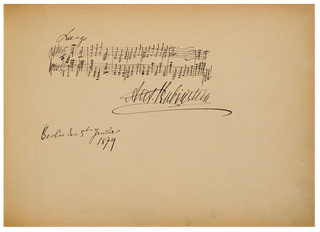 Ant Rubinstein
Berlin den 5ten Januar
1879